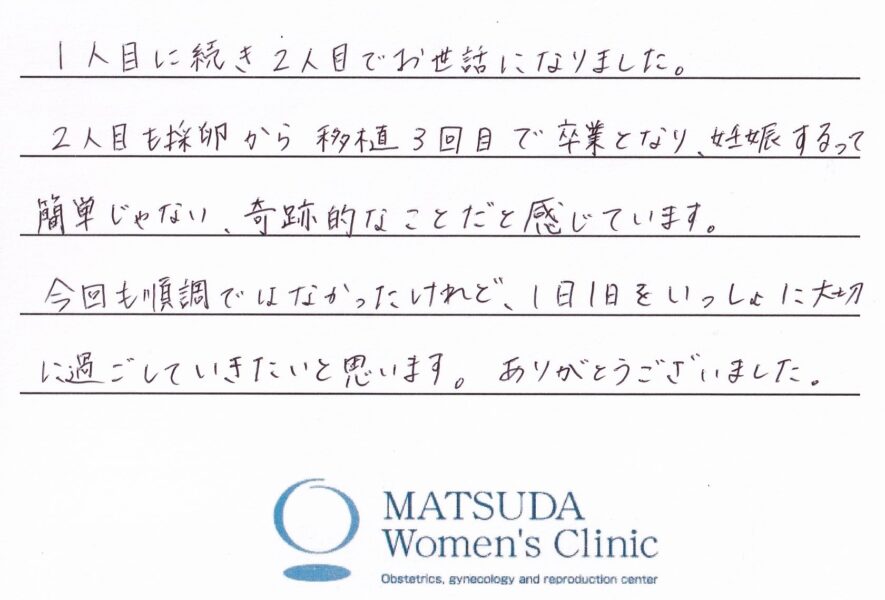 1人目に続き2人目でお世話になりました。
2人目も採卵から移植3回目で卒業となり、妊娠するって
簡単じゃない、奇跡的なことだと感じています。
今回も順調ではなかったけれど、1日1日をいっしょに大切
に過ごしていきたいと思います。ありがとうございました。
MATSUDA
Women's Clinic
Obstetrics, gynecology and reproduction center